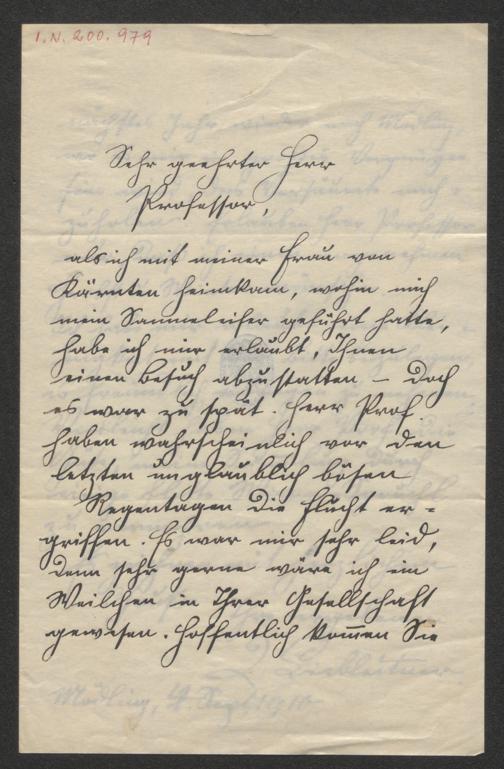 I.N. 200.979
Sehr geehrter Herr
Professor,
als ich mit meiner Frau von
Kärnten heimkam, wohin mich
mein Sammeleifer geführt hatte,
habe ich mir erlaubt, Ihnen
einen Besuch abzustatten – doch
es war zu spät. Herr Prof.
haben wahrscheinlich vor den
letzten unglaublich bösen
Regentagen die Flucht er-
griffen. Es war mir sehr leid,
denn sehr gerne wäre ich ein
Weilchen in Ihrer Gesellschaft
gewesen. Hoffentlich kom̅en Sie